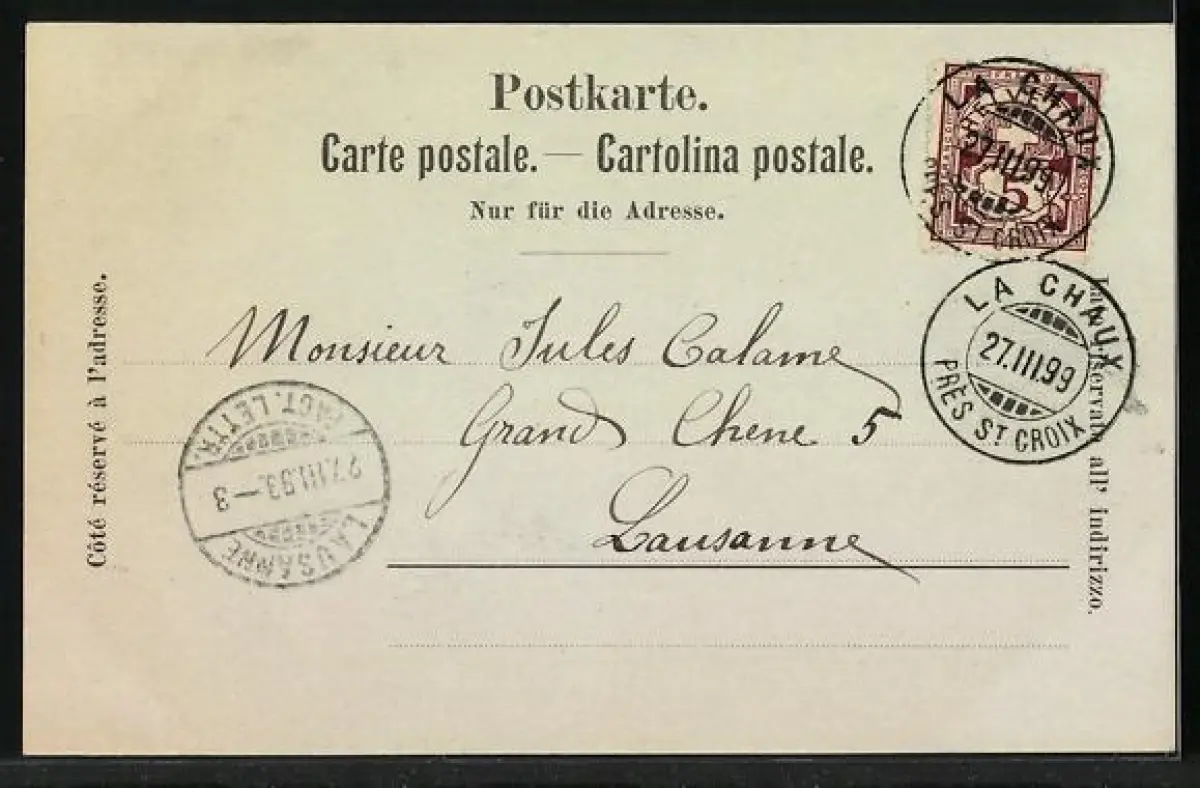 Postkarte.
Carte postale. — Cartolina postale.
Nur für die Adresse.
LA CHAUX
27.III.99
PRÈS ST CROIX
HELVETIA
FRANCO
5
Côté réservé à l'adresse.
Monsieur Jules Calame
Grand Chene 5
Lausanne
LA CHAUX
27.III.99
PRÈS ST CROIX
all' indirizzo.
FACT. LETTR.
27.III.99.-3
LAUSANNE